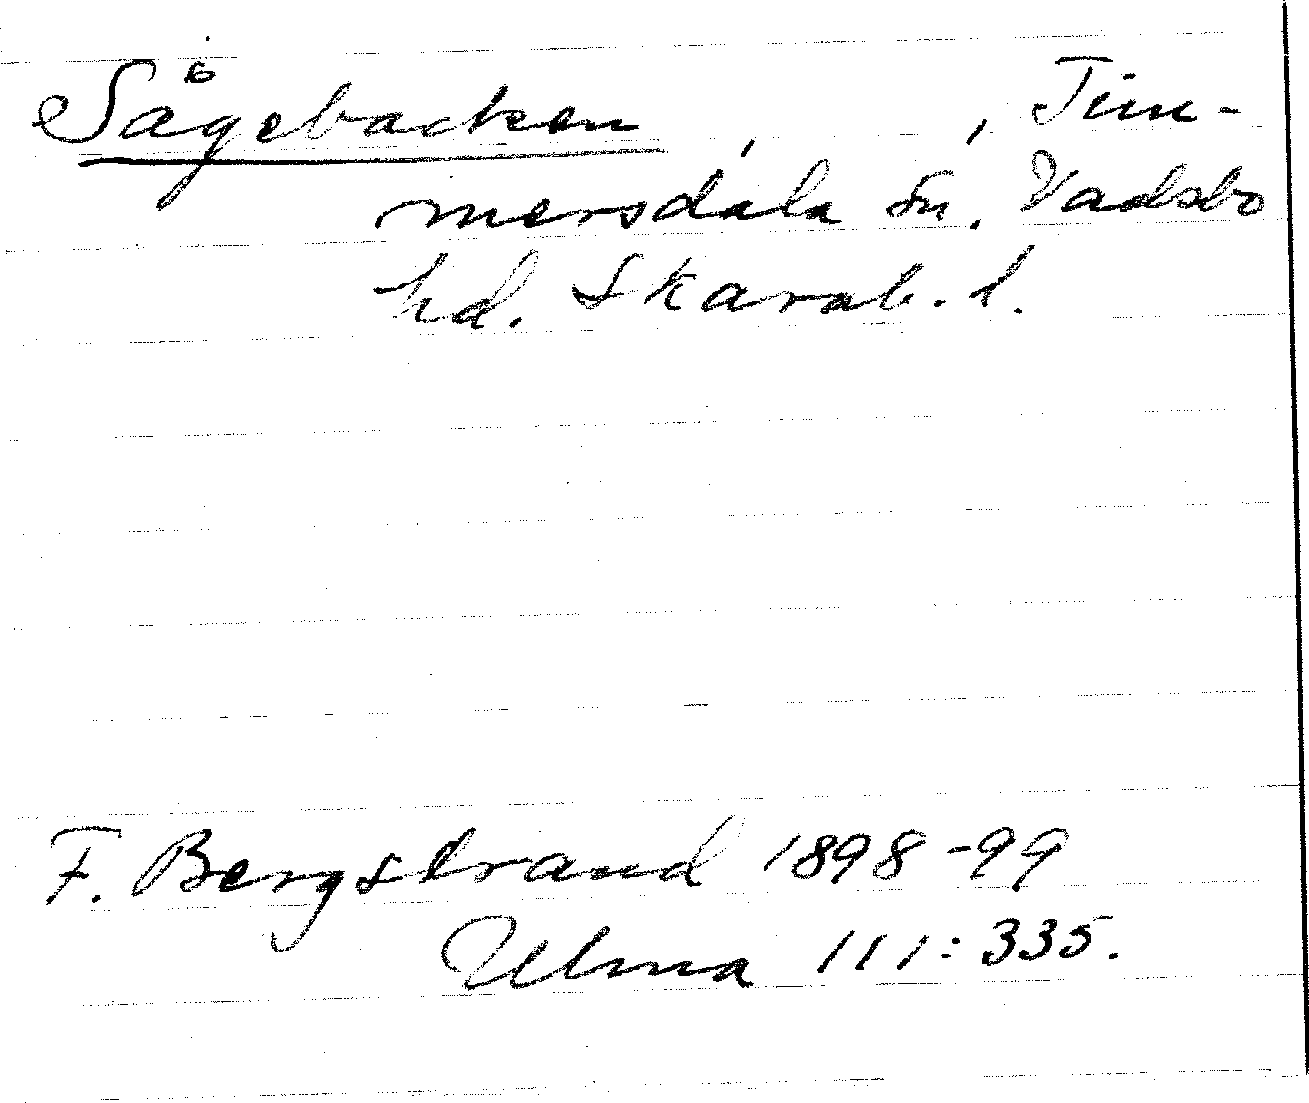 Sågebacken , , Tim-
mersdala sn. Vadsbo
hd. Skarab. l.
F. Bergstrand 1898-99
Ulma 111:335.